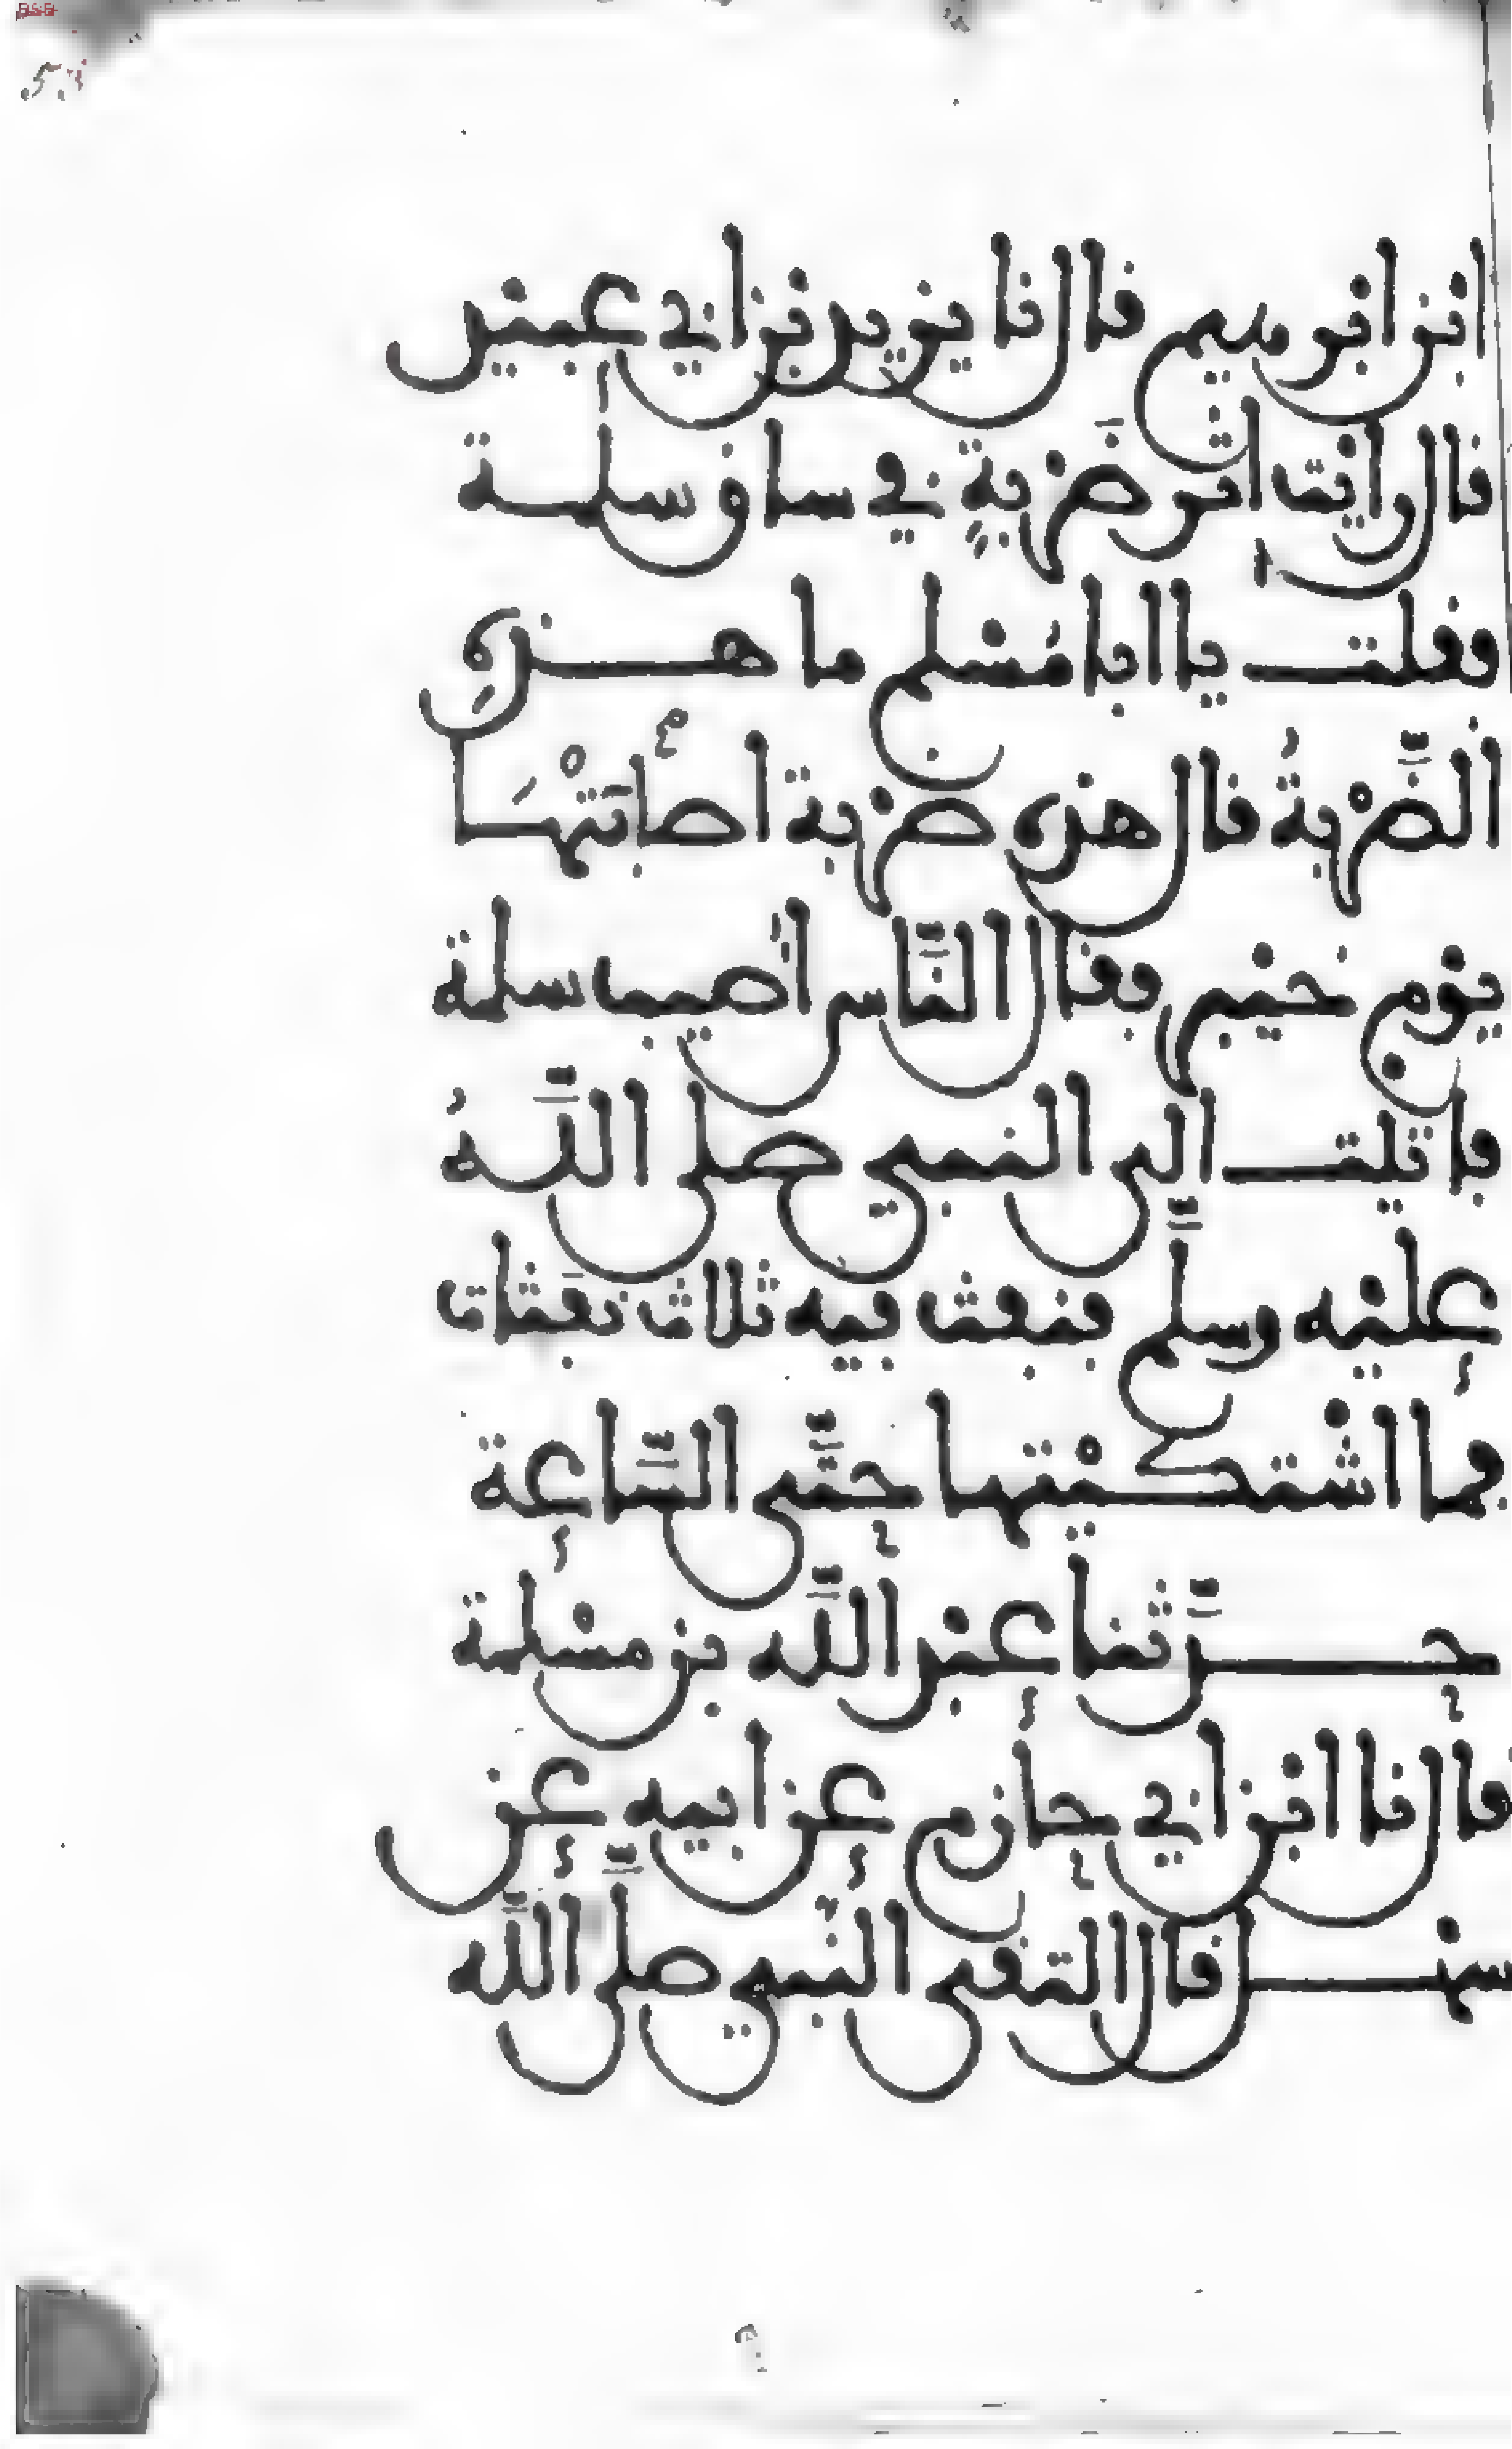 53
ابن ابرهيم قال نا يزيد بن ابي عبيد
قال رايت اثر ضَرْبةٍ في ساق سلمة
فقلت يا ابا مُسْلم ما هذه
الضَّرْبةُ قال هذه ضربة أصابَتْهَا
يوْم خيْبر فقال النَّاس أصيب سلمة
فاتيت الى النبي صلى اللَّهُ
عليْه وسلَّم فنفث فيه ثلاث نفَثات
فما اشْتكيْتها حتَّى السَّاعة
حدَّثنا عبْد اللَّه بن مسْلمة
قال نا ابْن ابي حازم عن ابيه عن
سهْل قال التقى النَّبي صلَّى اللَّه